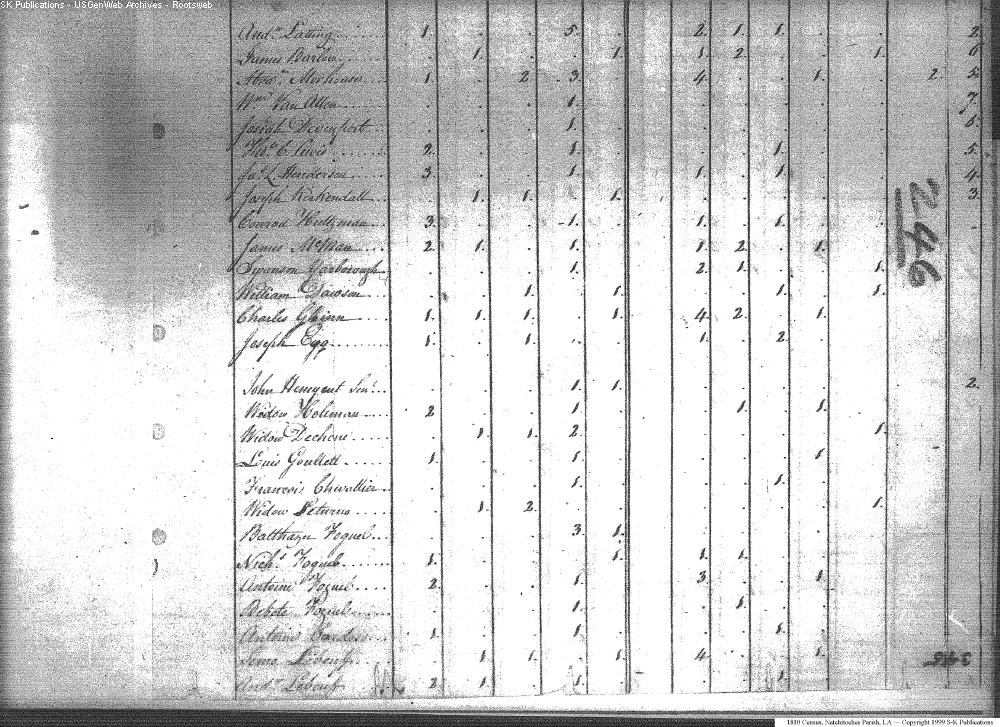 SK Publications - USGenWeb Archives - Rootsweb
And.w Latting 1. . . 5. . 2. 1. 1. . . 2.
James Barlow . 1. . . 1. 1. 2. . . 1. 6
Abra.m Morhouse 1. . 2. 3. . 4. . . 1. . 2. 5.
W.m Van Allen . . . 1. . . . . . . 7.
Josiah Devenport . . . 1. . . . . . .
Tho.s C Lewis 2. . . 1. . . . 1. . . 5.
Ja.s L Henderson 3. . . 1. . 1. . 1. . . 4.
Joseph Kirkendall . 1. 1. . 1. . . . . . 3.
Conrod 3. . . 1. . 1. . 1. . .
James McMan 2. 1. . 1. . 1. 2. . 1. .
Swanson Yarborough . . . 1. . 2. 1. . . 1.
William Dawson . . 1. . 1. . . 1. . 1.
Charles Glinn 1. 1. 1. . 1. 4. 2. . 1. .
Joseph Egg 1. . 1. . . 1. . 2. . .
246
John Sen.r . . . 1. 1. . . . . . 2.
Widow Holiman 2 . . 1. . . 1. . 1. .
Widow Dechene . 1. 1. 2. . . . . . 1.
Louis Goullett 1. . . 1. . . . . 1. .
Francois Chevallier . . . 1. . . . 1. . .
Widow . 1. 2. . . . . . . 1.
Balthazer Foguel . . . 3. 1. . . . . .
Nich.s Foguel 1. . . . 1. 1. 1. . . .
Antoine Foguel 2. . . 1. . 3. . . 1. .
Bebete Foguel . . . 1. . . 1. . . .
Antoine 1. . . 1. . . . 1. . .
Lebeuf . 1. 1. . 1. 4. . . 1. .
And.w Lebeuf 2. 1. . 1. . . . 1. . .
1810 Census, Natchitoches Parish, LA — Copyright 1999 S-K Publications